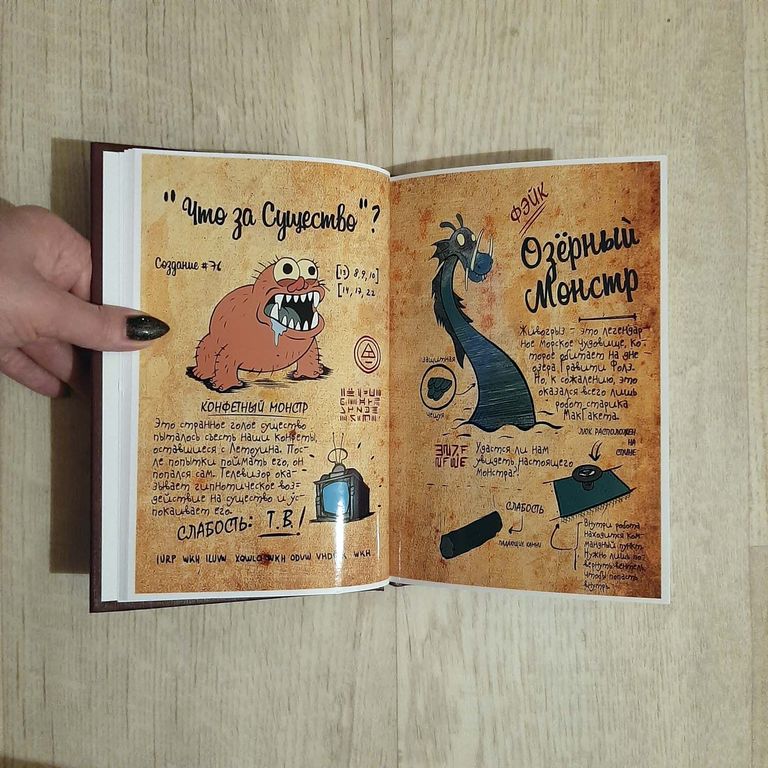 "Что за Существо"?
Создание #76
[13) 8,9,10]
[14, 17, 22
КОНФЕТНЫЙ МОНСТР
Это странное голое существо
пыталось съесть наши конфеты,
оставшиеся с Летоуина. Пос-
ле попытки поймать его, он
попался сам. Телевизор ока-
зывает гипнотическое воз-
действие на существо и ус-
покаивает его.
СЛАБОСТЬ: Т.В.!
IURP WKH ILUVW WKH ODVW WKH
ФЭЙК
Озёрный
Монстр
Живогрыз - это легендар
ное морское чудовище, ко-
торое обитает на дне
озера Гравити Фолз.
Но, к сожалению, это
оказался всего лишь
робот старика
МакГакета.
ЗАЩИТНАЯ
ЧЕШУЯ
Удастся ли нам
увидеть настоящего
монстра?!
ЛЮК РАСПОЛОЖЕН
НА
СПИНЕ
СЛАБОСТЬ
ПАДАЮЩИЕ КАМНИ
Внутри робота
находится ком-
мандный пункт.
Нужно лишь по-
вернуть вентель,
чтобы попасть
внутрь